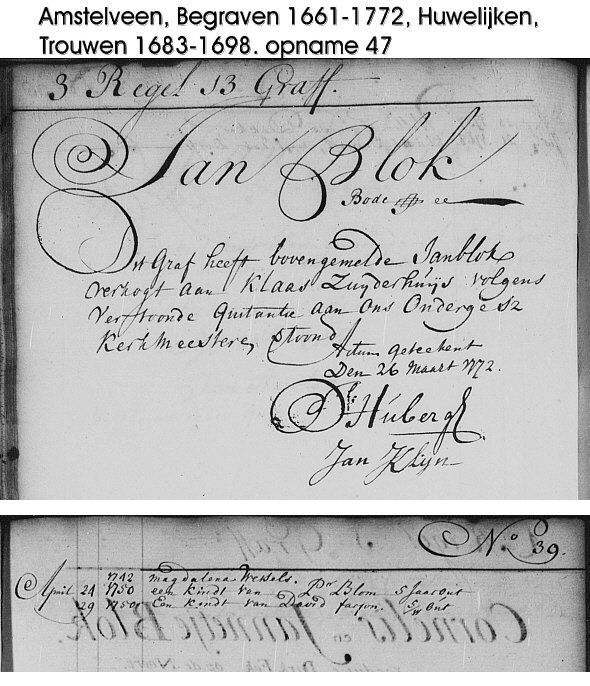 Amstelveen, Begraven 1661-1772, Huwelijken,
Trouwen 1683-1698. opname 47
3 Regel 13 Graff.
Jan Blok
Bode
Dit Graf heeft bovengemelde Janblok
verkogt aan Klaas Zuyderhuijs volgens
Verthoonde Quitantie aan ons Onderge
Kerkmeesteren
Actum Geteekent
Den 26 Maart 1772.
Huberg
Jan Klijn
No 39.
1742 Magdalena Wessels.
April 24 1750 een kindt van Pr Blom 5 Jaar out
29 1750 Een kindt van David out
Cornelis en Jannetje Blok.